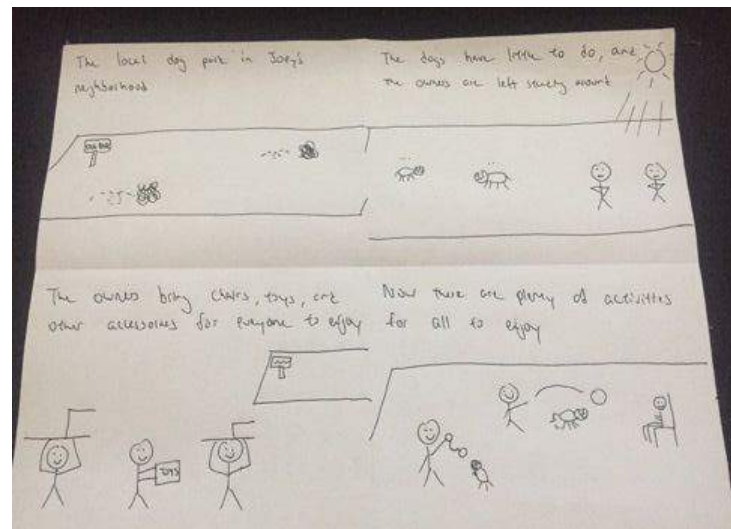 The local dog park in Joey's
neighborhood
The dogs have little to do, and
the owners are left standing around
The owners bring chairs, toys, and
other accessories for everyone to enjoy
TOYS
Now there are plenty of activities
for all to enjoy